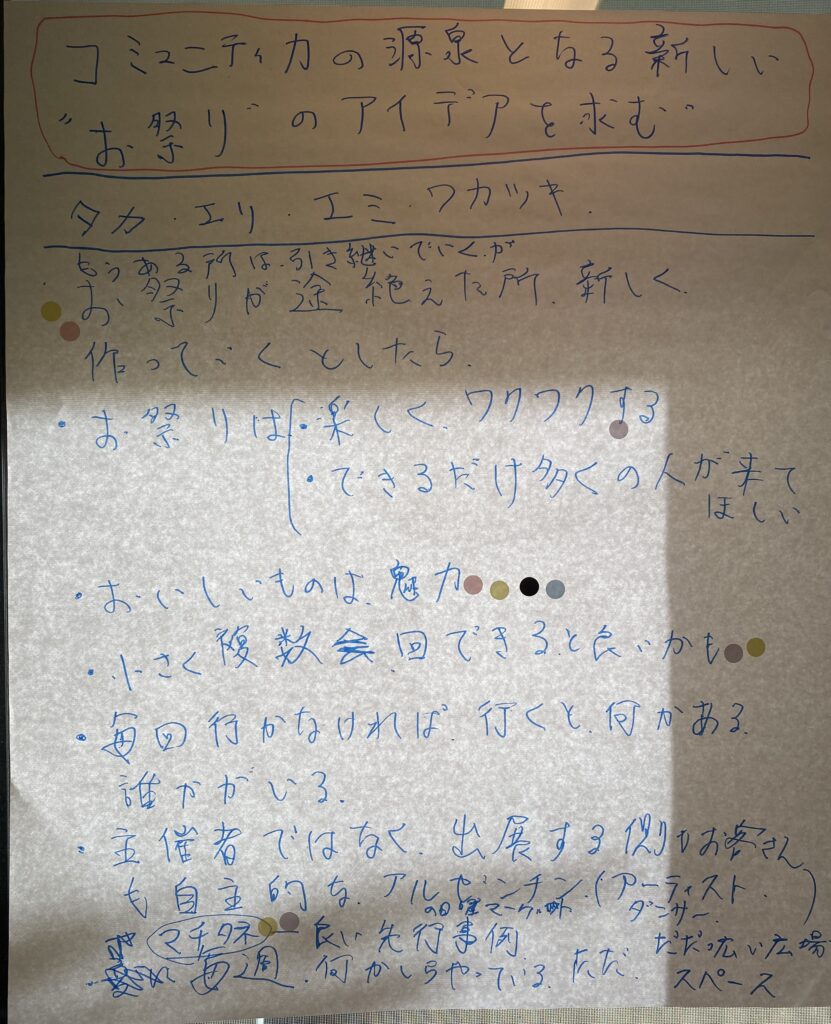 コミュニティ力の源泉となる新しい
"お祭り"のアイデアを求む
タカ・エリ・エミ・ワカツキ.
もうある所は.引き継いでいくが
お祭りが途絶えた所.新しく.
作っていくとしたら.
・お祭りは・楽しく.ワクワクする
・できるだけ多くの人が来て
ほしい
・おいしいものは.魅力
・小さく複数回できると良いかも
・毎回行かなければ.行くと.何かある.
誰かがいる.
・主催者ではなく.出展する側もお客さん
も自主的な.アルゼンチン.(アーティスト.
の日曜マーケット ダンサー.)
マチタネ 良い先行事例. だだっ広い広場
毎週.何かしらやっている.ただ. スペース